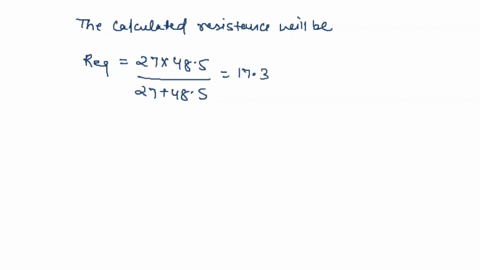 The calculated resistance will be
Req = 27×48.5 / 27+48.5 = 17.3